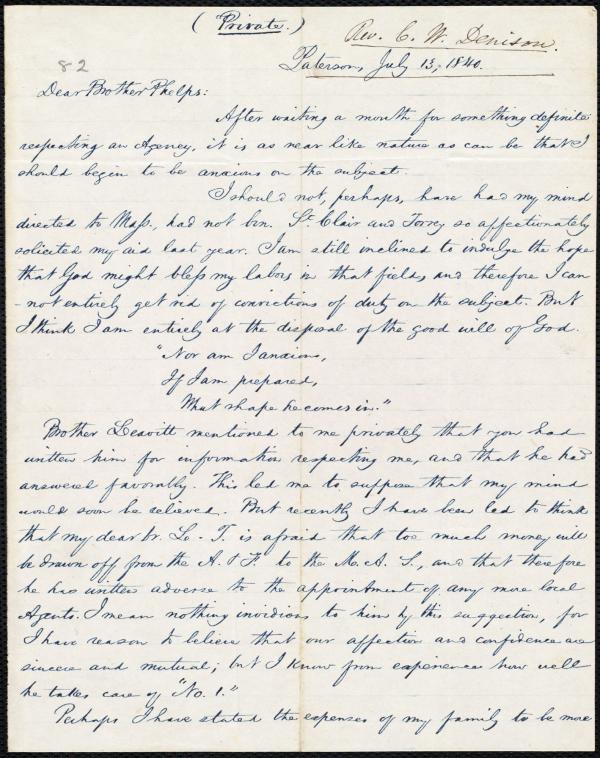 (Private.)
Rev. C. W. Denison.
82
Paterson, July 13, 1840.
Dear Brother Phelps:
After waiting a month for something definite
respecting an Agency, it is as near like nature as can be that I
should begin to be anxious on the subject.
I should not, perhaps, have had my mind
directed to Mass., had not brn. St. Clair and Torrey so affectionately
solicited my aid last year. I am still inclined to indulge the hope
that God might bless my labors in that field, and therefore I can
not entirely get rid of convictions of duty on the subject. But
I think I am entirely at the disposal of the good will of God.
"Nor am I anxious,
If I am prepared,
What shape he comes in."
Brother Leavitt mentioned to me privately that you had
written him for information respecting me, and that he had
answered favorably. This led me to suppose that my mind
would soon be relieved. But recently I have been led to think
that my dear br. L. T. is afraid that too much money will
be drawn off from the A. & F. to the M. A. S., and that therefore
he has written adverse to the appointment of any more local
Agents. I mean nothing invidious to him by this suggestion, for
I have reason to believe that our affection and confidence are
sincere and mutual; but I know from experience how well
he takes care of "No. 1."
Perhaps I have stated the expenses of my family to be more